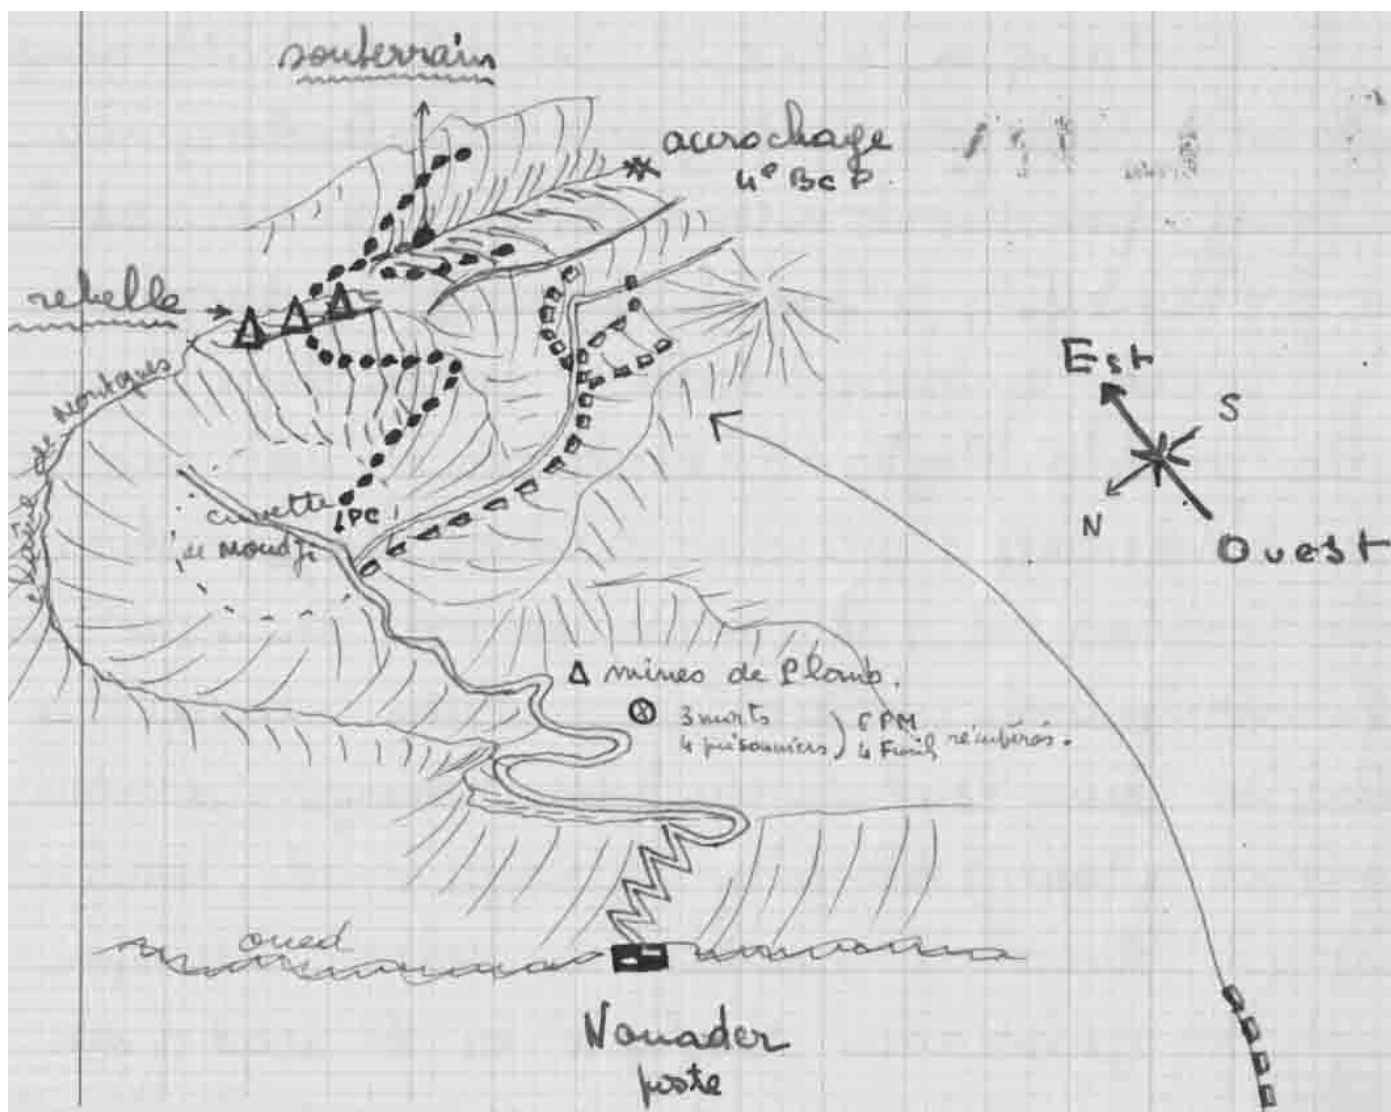 souterrain
accrochage
4e BCP.
rebelle
chaîne de montagnes
Est
S
N
Ouest
cuvette
PC
de Moudji
Δ mines de Plomb.
3 morts
4 prisonniers
6 PM
4 Fusils
récupérés.
oued
Nouader
poste